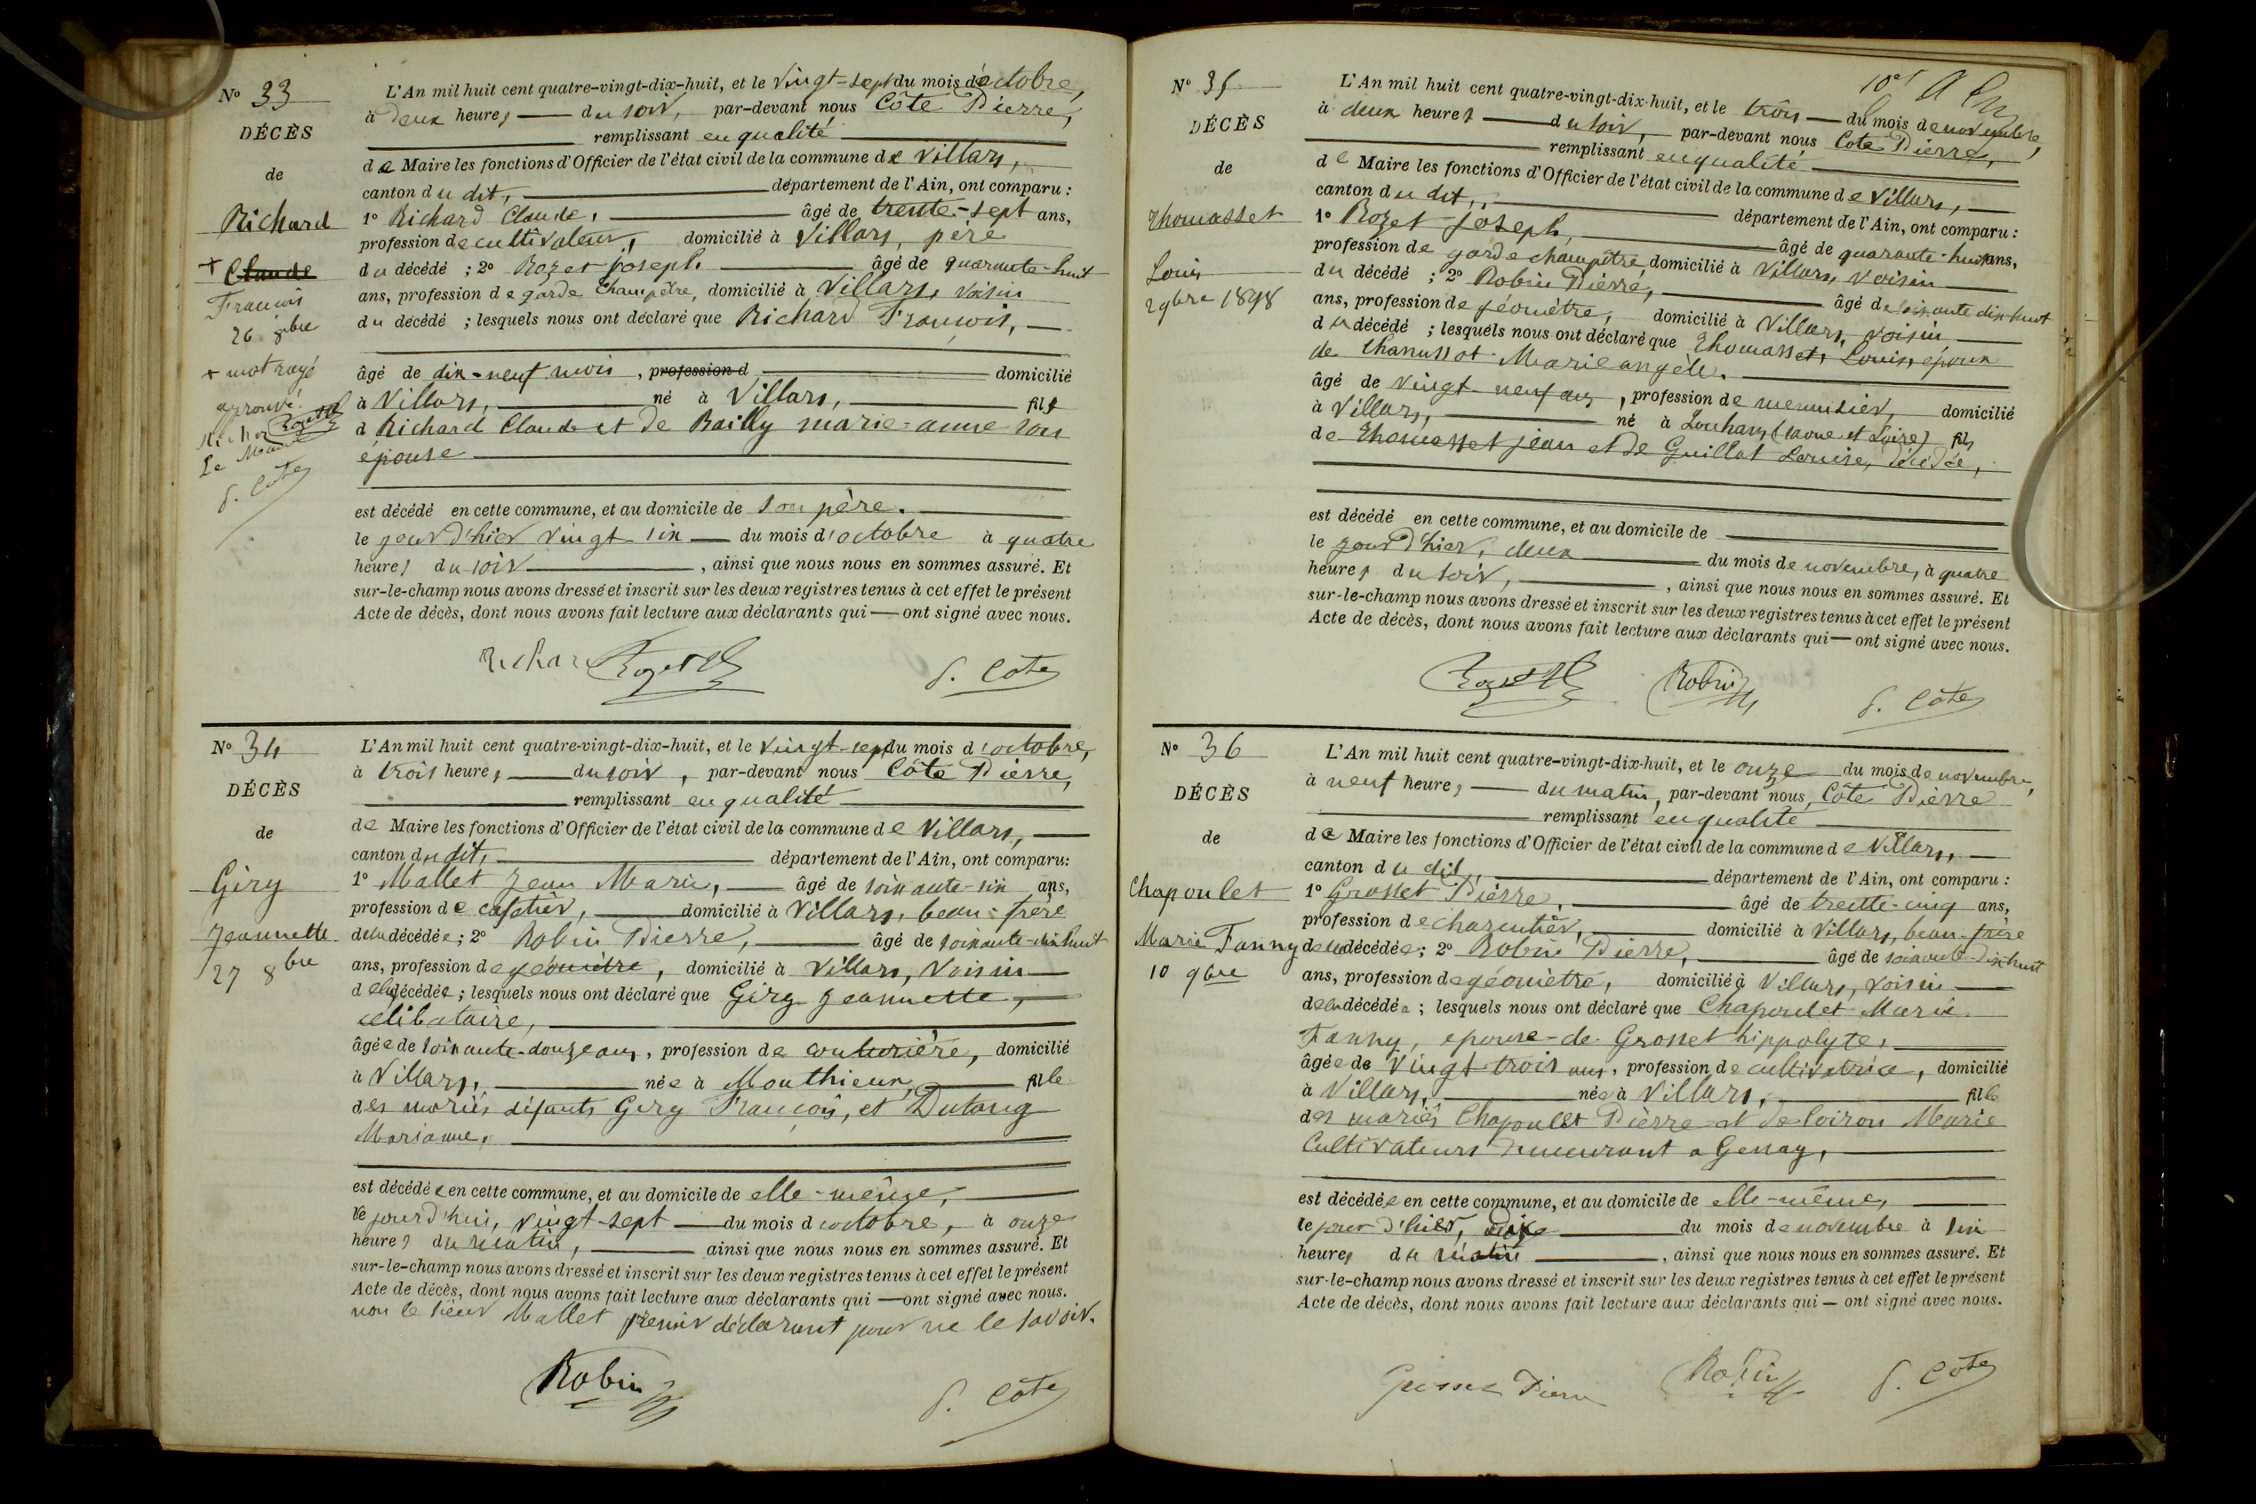 N° 33
DÉCÈS
de
Richard
+ Claude
François
26 8bre
+ mot rayé
aprouvé.
Richar Rozet
Le Maire
P. Côte
L'An mil huit cent quatre-vingt-dix-huit, et le vingt-sept du mois d'octobre,
à deux heures du soir, par-devant nous Côte Pierre,
remplissant en qualité
de Maire les fonctions d'Officier de l'état civil de la commune de Villars,
canton du dit, département de l'Ain, ont comparu :
1° Richard Claude, âgé de trente-sept ans,
profession de cultivateur, domicilié à Villars, père
du décédé ; 2° Rozet joseph âgé de quarante-huit
ans, profession de garde champêtre, domicilié à Villars, voisin
du décédé ; lesquels nous ont déclaré que Richard François,
âgé de dix-neuf mois, profession d domicilié
à Villars, né à Villars, fils
d Richard Claude et de Bailly marie-anne son
épouse
est décédé en cette commune, et au domicile de son père.
le jour d'hier vingt six du mois d'octobre à quatre
heures du soir, ainsi que nous nous en sommes assuré. Et
sur-le-champ nous avons dressé et inscrit sur les deux registres tenus à cet effet le présent
Acte de décès, dont nous avons fait lecture aux déclarants qui — ont signé avec nous.
Richar Rozet P. Côte
N° 34
DÉCÈS
de
Giry
Jeannette
27 8bre
L'An mil huit cent quatre-vingt-dix-huit, et le vingt-sept du mois d'octobre,
à trois heures, du soir, par-devant nous Côte Pierre,
remplissant en qualité
de Maire les fonctions d'Officier de l'état civil de la commune de Villars,
canton du dit, département de l'Ain, ont comparu:
1° Mallet Jean Marie, âgé de soixante-six ans,
profession de cafetier, domicilié à Villars, beau-frère
de la décédée; 2° Robin Pierre, âgé de soixante-dix huit
ans, profession de géomètre, domicilié à Villars, voisin
de la décédée; lesquels nous ont déclaré que Giry Jeannette,
célibataire,
âgée de soixante-douze ans, profession de couturière, domicilié
à Villars, née à Monthieux, fille
des mariés défunts Giry François, et Dutang
Marianne,
est décédée en cette commune, et au domicile de elle-même,
le jourd'hui, vingt-sept du mois d'octobre, à onze
heures du matin, ainsi que nous nous en sommes assuré. Et
sur-le-champ nous avons dressé et inscrit sur les deux registres tenus à cet effet le présent
Acte de décès, dont nous avons fait lecture aux déclarants qui — ont signé avec nous.
non le sieur Mallet premier déclarant pour ne le savoir.
Robin P. Côte
N° 35
DÉCÈS
de
Thomasset
Louis
2 9bre 1898
L'An mil huit cent quatre-vingt-dix-huit, et le trois du mois de novembre,
à deux heures du soir, par-devant nous Côte Pierre,
remplissant en qualité
de Maire les fonctions d'Officier de l'état civil de la commune de Villars,
canton du dit, département de l'Ain, ont comparu :
1° Rozet joseph, âgé de quarante-huit ans,
profession de garde champêtre, domicilié à Villars, voisin
du décédé ; 2° Robin Pierre, âgé de soixante dix-huit
ans, profession de géomètre, domicilié à Villars, voisin
du décédé ; lesquels nous ont déclaré que Thomasset, Louis, époux
de Chanussot Marie angèle,
âgé de vingt-neuf ans, profession de menuisier, domicilié
à Villars, né à Louhans (saone et Loire) fils
de Thomasset jean et de Guillot Louise, décédée,
est décédé en cette commune, et au domicile de
le jour d'hier, deux du mois de novembre, à quatre
heures du soir, ainsi que nous nous en sommes assuré. Et
sur-le-champ nous avons dressé et inscrit sur les deux registres tenus à cet effet le présent
Acte de décès, dont nous avons fait lecture aux déclarants qui — ont signé avec nous.
Rozet Robin P. Côte
N° 36
DÉCÈS
de
Chapoulet
Marie Fanny
10 9bre
L'An mil huit cent quatre-vingt-dix-huit, et le onze du mois de novembre,
à neuf heures, du matin, par-devant nous, Côte Pierre
remplissant en qualité
de Maire les fonctions d'Officier de l'état civil de la commune de Villars,
canton du dit, département de l'Ain, ont comparu :
1° Grosset Pierre, âgé de trente-cinq ans,
profession de charpentier, domicilié à Villars, beau-frère
de la décédée; 2° Robin Pierre, âgé de soixante-dix-huit
ans, profession de géomètre, domicilié à Villars, voisin
de la décédée; lesquels nous ont déclaré que Chapoulet Marie
Fanny, epouse-de Grosset hippolyte,
âgée de vingt trois ans, profession de cultivatrice, domicilié
à Villars, née à Villars, fille
des mariés Chapoulet Pierre et de Loiron Marie
Cultivateurs demeurant a Genay,
est décédée en cette commune, et au domicile de elle-même,
le jour d'hier, dix du mois de novembre à six
heures du matin, ainsi que nous nous en sommes assuré. Et
sur-le-champ nous avons dressé et inscrit sur les deux registres tenus à cet effet le présent
Acte de décès, dont nous avons fait lecture aux déclarants qui — ont signé avec nous.
Grosset Pierre Robin P. Côte